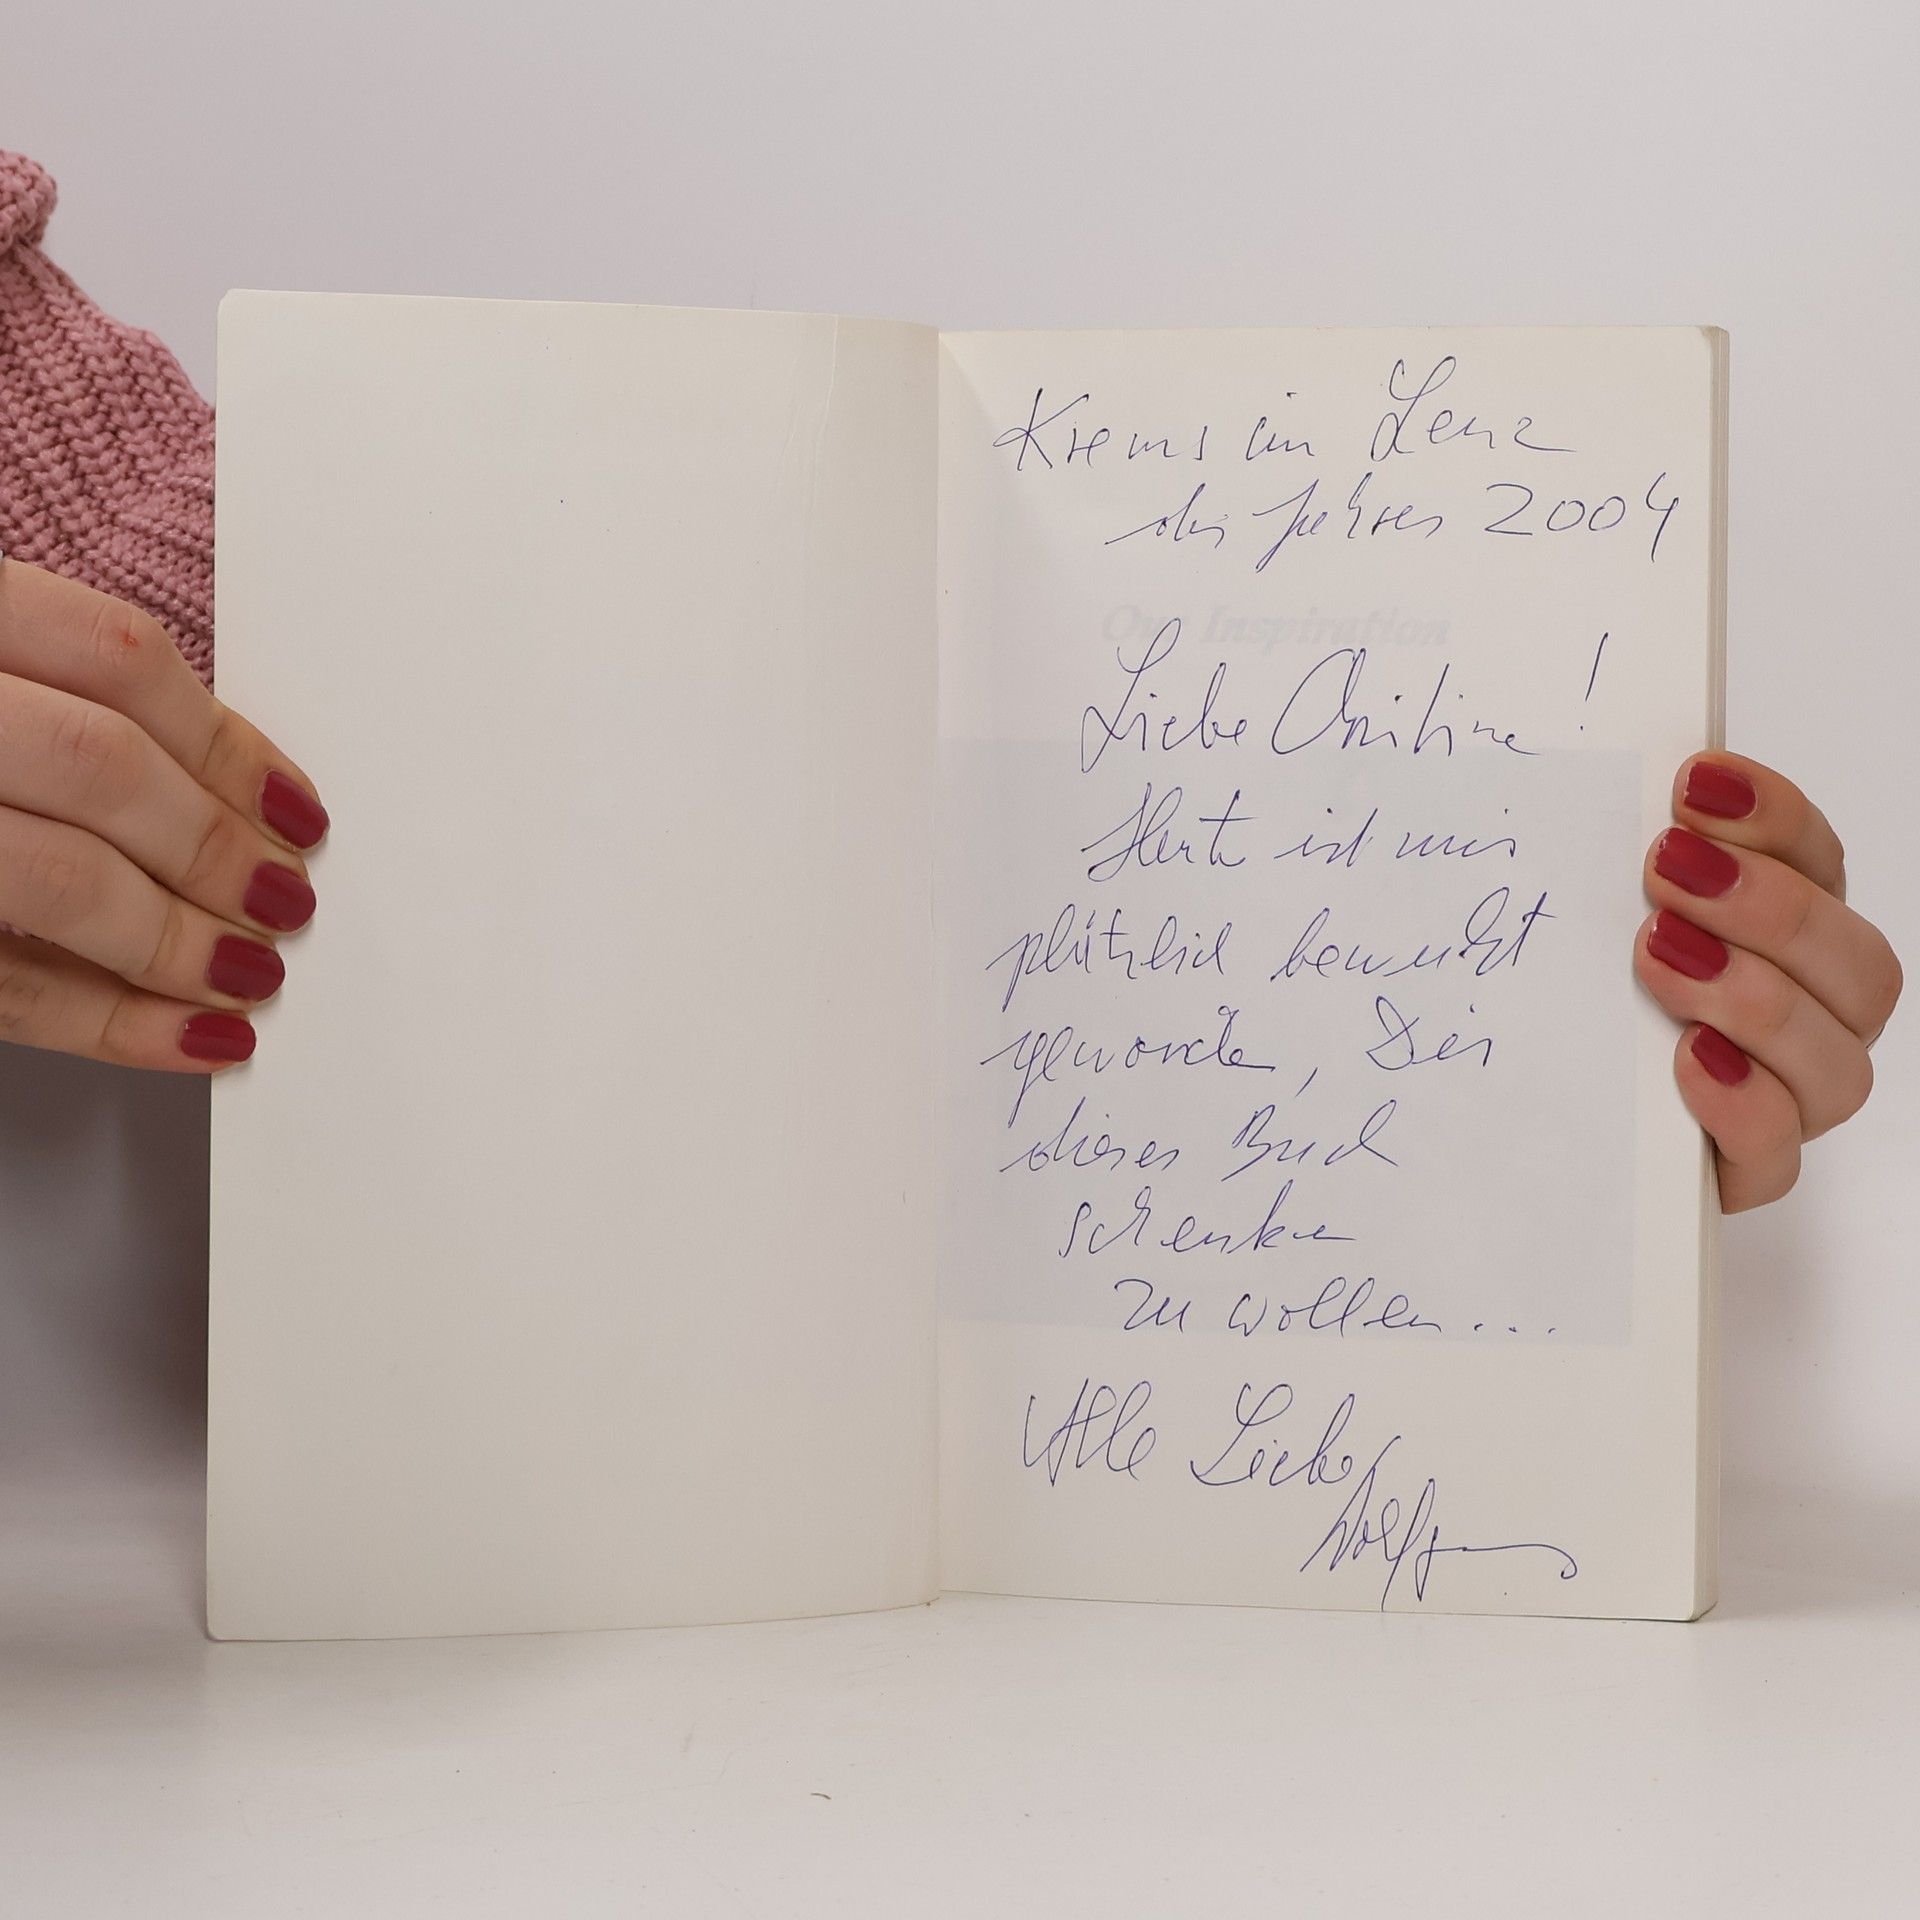 Krems im Lenz
des Jahres 2004
Our Inspiration
Liebe Christine!
Heute ist mir
plötzlich bewußt
geworden, Dir
dieses Buch
schenken
zu wollen...
Alle Liebe
Wolfgang